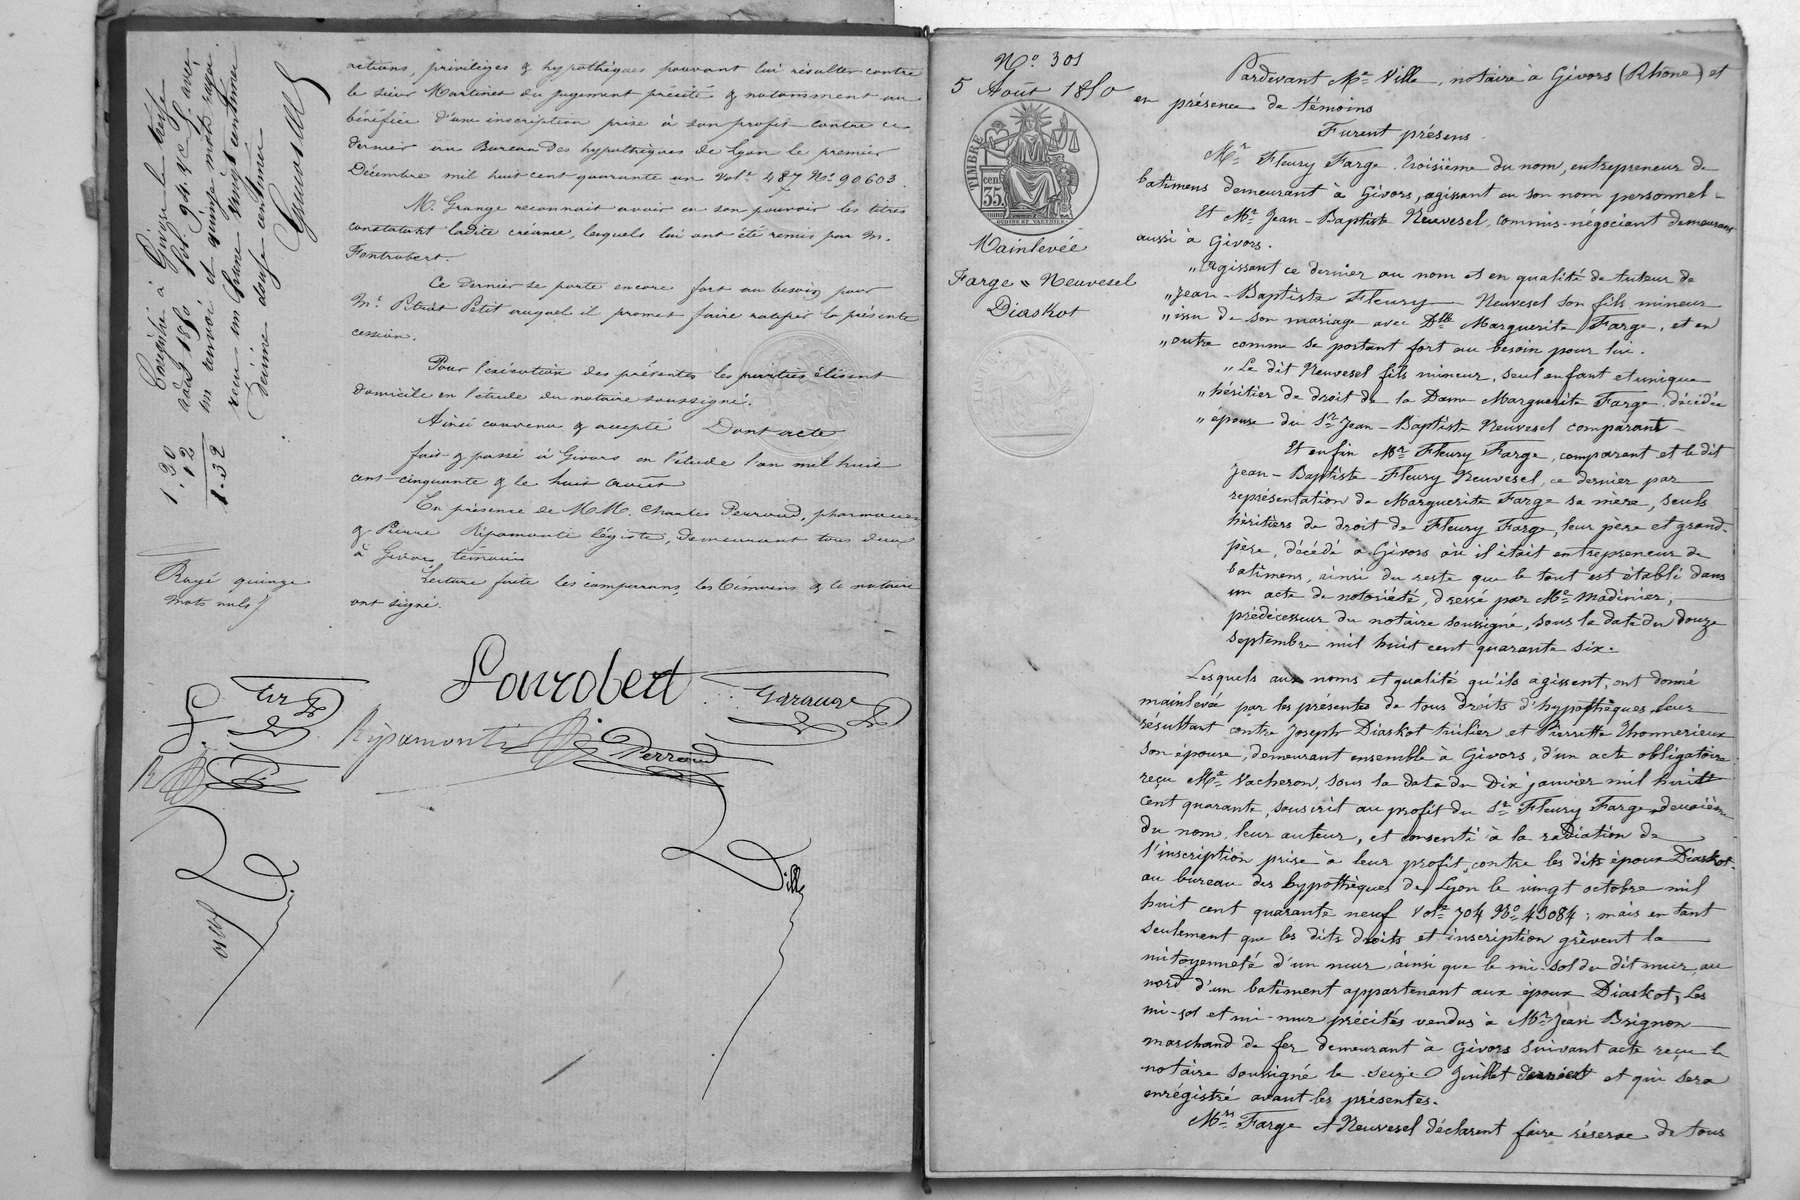 actions, privilèges & hypothèques pouvant lui résulter contre
le sieur Martinet du jugement précité & notamment au
bénéfice d'une inscription prise à son profit contre ce
dernier au Bureau des hypothèques de Lyon le premier
Décembre mil huit cent quarante un Vol. 487 No. 90603.
M. Grange reconnait avoir en son pouvoir les titres
constatant ladite créance, lesquels lui ont été remis par M.
Fontrobert.
Ce dernier se porte encore fort au besoin pour
Mr. Petit auquel il promet faire ratifier la présente
cession.
Pour l'exécution des présentes les parties élisent
domicile en l'étude du notaire soussigné.
Ainsi convenu & accepté Dont acte
fait & passé à Givors en l'étude l'an mil huit
cent cinquante & le huit août
En présence de MM. Charles Perroud, pharmacien
& Pierre Ripamonti légiste, demeurant tous deux
à Givors, témoins
Lecture faite les comparans, les témoins & le notaire
ont signé.
Enregistré à Givors le
août 1850 fol. 94. Vo. avec
un renvoi et quinze mots rayés.
reçu un franc vingt centimes
Décime douze centimes
1.20
12
1.32
Rayé quinze
mots nuls
Ripamonti
Perroud
Ville
No. 301
5 Août 1850
TIMBRE
35
cen
Mainlevée
Farge & Neuvesel
Diaskot
Pardevant Me. Ville, notaire à Givors (Rhône) et
en présence de témoins
Furent présens
Mr. Fleury Farge, troisième du nom, entrepreneur de
batimens demeurant à Givors, agissant en son nom personnel -
Et Mr. Jean-Baptiste Neuvesel, commis-négociant demeurant
aussi à Givors.
" Agissant ce dernier au nom et en qualité de tuteur de
" Jean-Baptiste Fleury Neuvesel son fils mineur
" issu de son mariage avec Dlle Marguerite Farge, et en
" outre comme se portant fort au besoin pour lui.
" Le dit Neuvesel fils mineur, seul enfant et unique
" héritier de droit de la Dame Marguerite Farge, décédée
" épouse du Sr. Jean-Baptiste Neuvesel comparant -
Et enfin Mr. Fleury Farge, comparant et le dit
Jean-Baptiste Fleury Neuvesel, ce dernier par
représentation de Marguerite Farge sa mère, seuls
héritiers de droit de Fleury Farge, leur père et grand-
père, décédé à Givors où il était entrepreneur de
batimens, ainsi du reste que le tout est établi dans
un acte de notoriété, dressé par Me. Madinier,
prédécesseur du notaire soussigné, sous la date du douze
septembre mil huit cent quarante six.
Lesquels aux noms et qualité qu'ils agissent, ont donné
mainlevée par les présentes de tous droits d'hypothèques leur
résultant contre Joseph Diaskot tuilier et Pierrette Thonnerieux
son épouse, demeurant ensemble à Givors, d'un acte obligatoire
reçu Me. Vacheron, sous la date du Dix janvier mil huit
cent quarante, souscrit au profit du Sr. Fleury Farge deuxième
du nom, leur auteur, et consenti à la radiation de
l'inscription prise à leur profit, contre les dits époux Diaskot
au bureau des hypothèques de Lyon le vingt octobre mil
huit cent quarante neuf vole. 704 No. 43084; mais en tant
seulement que les dits droits et inscription grèvent la
mitoyenneté d'un mur, ainsi que le mi-sol du dit mur, au
nord d'un batiment appartenant aux époux Diaskot, les
mi-sol et mi-mur précités vendus à Mr. Jean Brignon
marchand de fer demeurant à Givors suivant acte reçu le
notaire soussigné le seize Juillet dernier et qui sera
enrégistré avant les présentes.
Mrs. Farge et Neuvesel déclarent faire réserve de tous